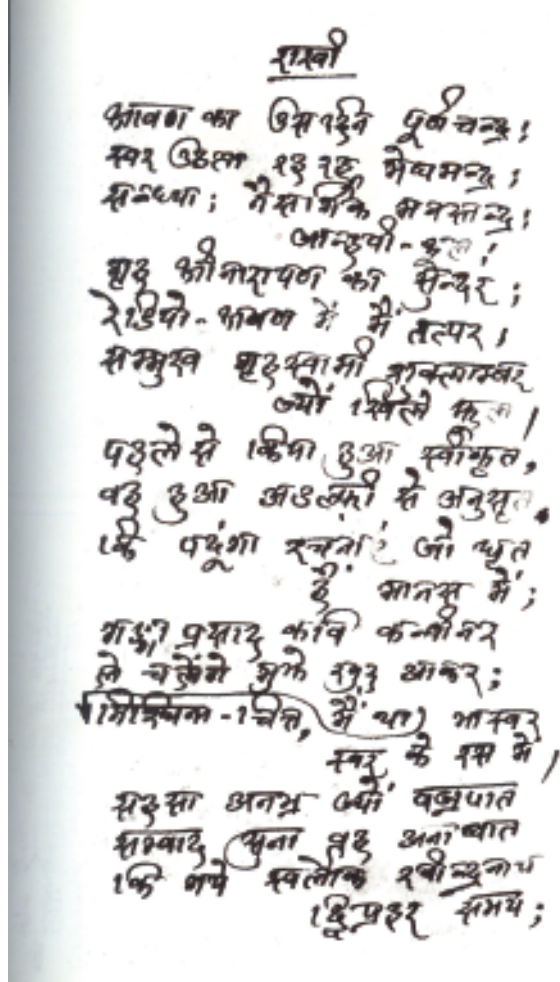 राखी
श्रावण का उस दिन पूर्णचन्द्र;
स्वर उठता रह रह मेघमन्द्र;
सन्ध्या; नैसर्गिक
जान्हवी-कूल;
गृह श्रीनारायण का सुन्दर;
रेडियो-श्रवण में मैं तत्पर;
सम्मुख गृहस्वामी
ज्यों खिले फूल।
पहले से किया हुआ स्वीकृत,
वह हुआ से अनुसृत
कि पढूंगा रचनाएं जो धृत
हैं मानस में;
गङ्गाप्रसाद कवि कन्वीनर
ले चलेंगे मुझे खुद आकर;
निश्चिन्त-चित्त, मैं था भास्वर
स्वर के रस में।
सहसा अनभ्र ज्यों वज्रपात
सम्वाद सुना वह
कि गये स्वर्लोक रवीन्द्रनाथ
द्विप्रहर समय;